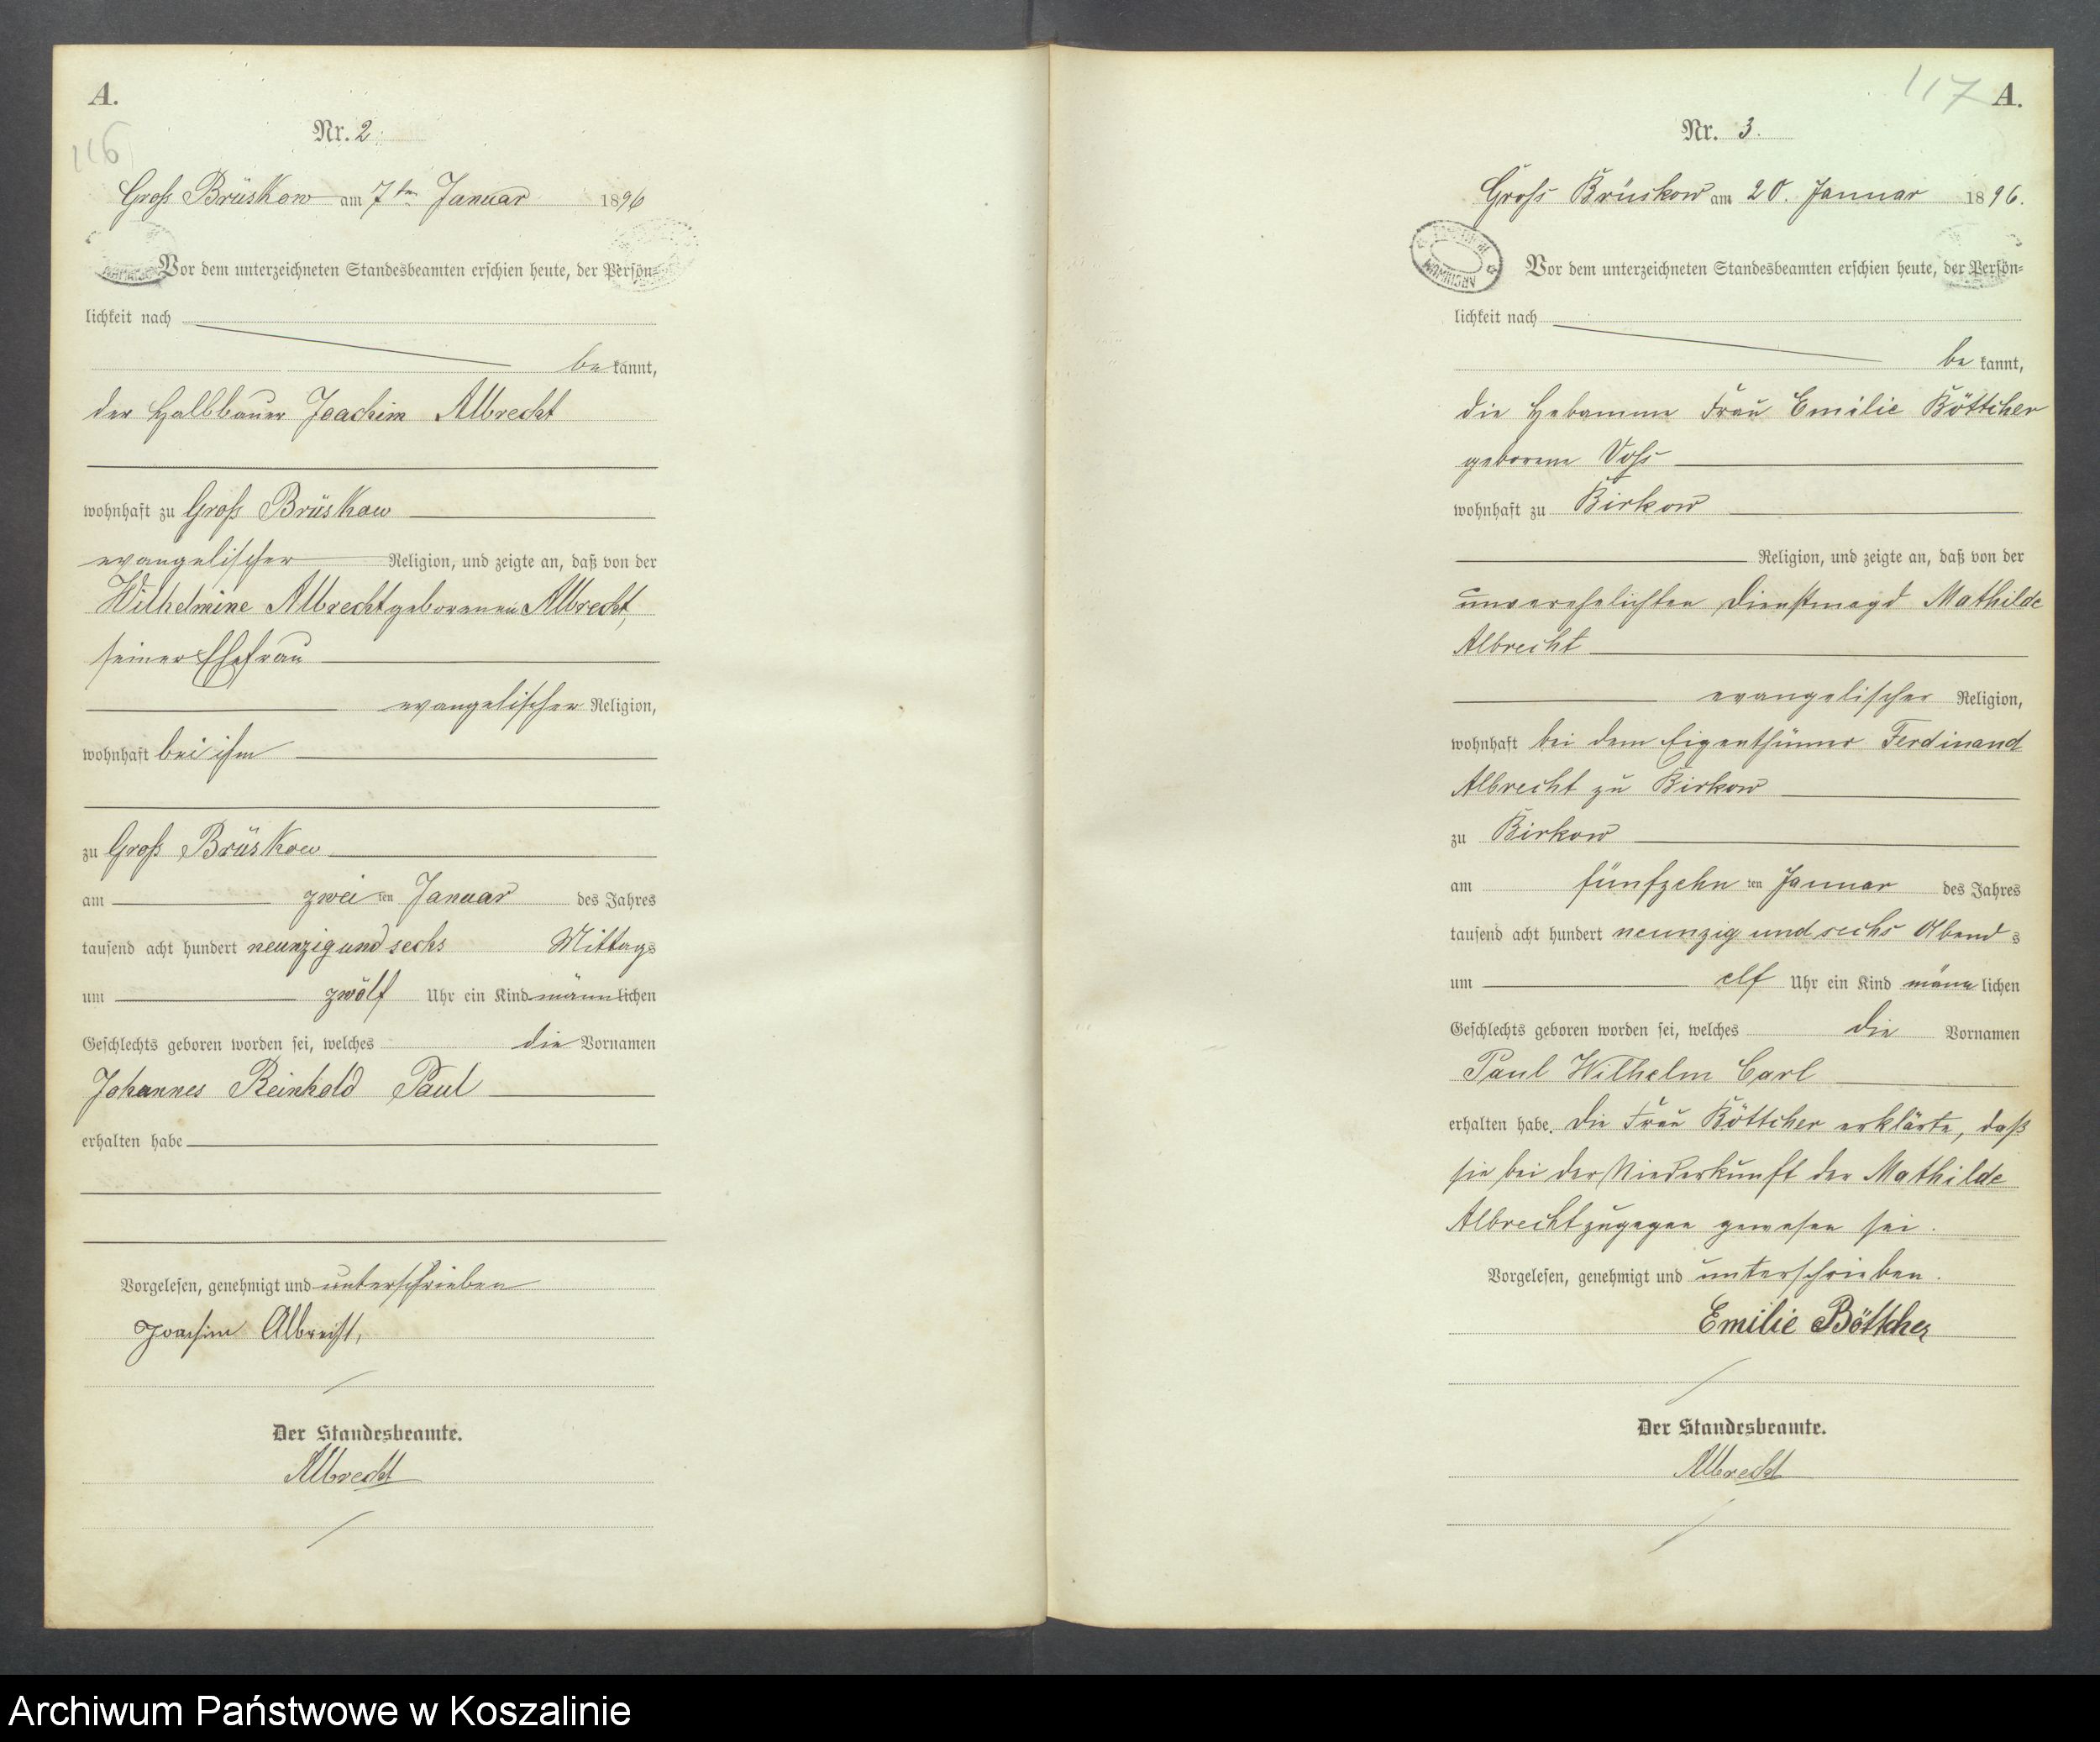 A.
116
Nr. 2.
Groß Brüskow am 7ten Januar 1896
Vor dem unterzeichneten Standesbeamten erschien heute, der Persön=
lichkeit nach
be kannt,
der Halbbauer Joachim Albrecht
wohnhaft zu Groß Brüskow
evangelischer Religion, und zeigte an, daß von der
Wilhelmine Albrecht geborenen Albrecht,
seiner Ehefrau
evangelischer Religion,
wohnhaft bei ihm
zu Groß Brüskow
am zwei ten Januar des Jahres
tausend acht hundert neunzig und sechs Mittags
um zwölf Uhr ein Kind männlichen
Geschlechts geboren worden sei, welches die Vornamen
Johannes Reinhold Paul
erhalten habe
Vorgelesen, genehmigt und unterschrieben
Joachim Albrecht,
Der Standesbeamte.
Albrecht
117 A.
Nr. 3.
Groß Brüskow am 20. Januar 1896.
ARCHIWUM
Vor dem unterzeichneten Standesbeamten erschien heute, der Persön=
lichkeit nach
be kannt,
die Hebamme Frau Emilie Böttcher
geborene Voß
wohnhaft zu Birkow
Religion, und zeigte an, daß von der
unverehelichten Dienstmagd Mathilde
Albrecht
evangelischer Religion,
wohnhaft bei dem Eigenthümer Ferdinand
Albrecht zu Birkow
zu Birkow
am fünfzehn ten Januar des Jahres
tausend acht hundert neunzig und sechs Abend s
um elf Uhr ein Kind männ lichen
Geschlechts geboren worden sei, welches die Vornamen
Paul Wilhelm Carl
erhalten habe. Die Frau Böttcher erklärte, daß
sie bei der Niederkunft der Mathilde
Albrecht zugegen gewesen sei.
Vorgelesen, genehmigt und unterschrieben.
Emilie Böttcher
Der Standesbeamte.
Albrecht
Archiwum Państwowe w Koszalinie